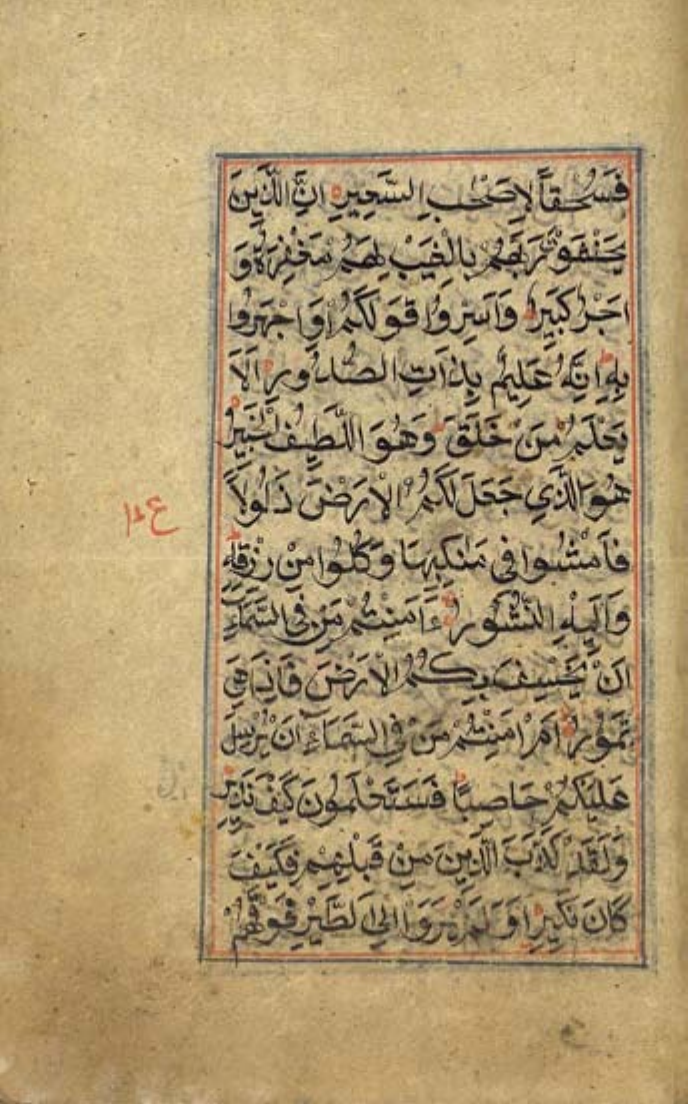 فَسُحْقاً لِاَصْحٰبِ السَّعِيرِ اِنَّ الَّذِينَ
يَخْشَوْنَ رَبَّهُمْ بِالْغَيْبِ لَهُمْ مَغْفِرَةٌ وَ
اَجْرٌ كَبِيرٌ وَاَسِرُّوا قَوْلَكُمْ اَوِ اجْهَرُوا
بِهِ اِنَّهُ عَلِيمٌ بِذَاتِ الصُّدُورِ اَلَا
يَعْلَمُ مَنْ خَلَقَ وَهُوَ اللَّطِيفُ الْخَبِيرُ
هُوَ الَّذِي جَعَلَ لَكُمُ الْاَرْضَ ذَلُولاً
فَامْشُوا فِى مَنَاكِبِهَا وَكُلُوا مِنْ رِزْقِهِ
وَاِلَيْهِ النُّشُورُ ءَاَمِنْتُمْ مَنْ فِى السَّمَاءِ
اَنْ يَخْسِفَ بِكُمُ الْاَرْضَ فَاِذَا هِىَ
تَمُورُ اَمْ اَمِنْتُمْ مَنْ فِى السَّمَاءِ اَنْ يُرْسِلَ
عَلَيْكُمْ حَاصِبًا فَسَتَعْلَمُونَ كَيْفَ نَذِيرِ
وَلَقَدْ كَذَّبَ الَّذِينَ مِنْ قَبْلِهِمْ فَكَيْفَ
كَانَ نَكِيرِ اَوَلَمْ يَرَوْا اِلَى الطَّيْرِ فَوْقَهُمْ
ع